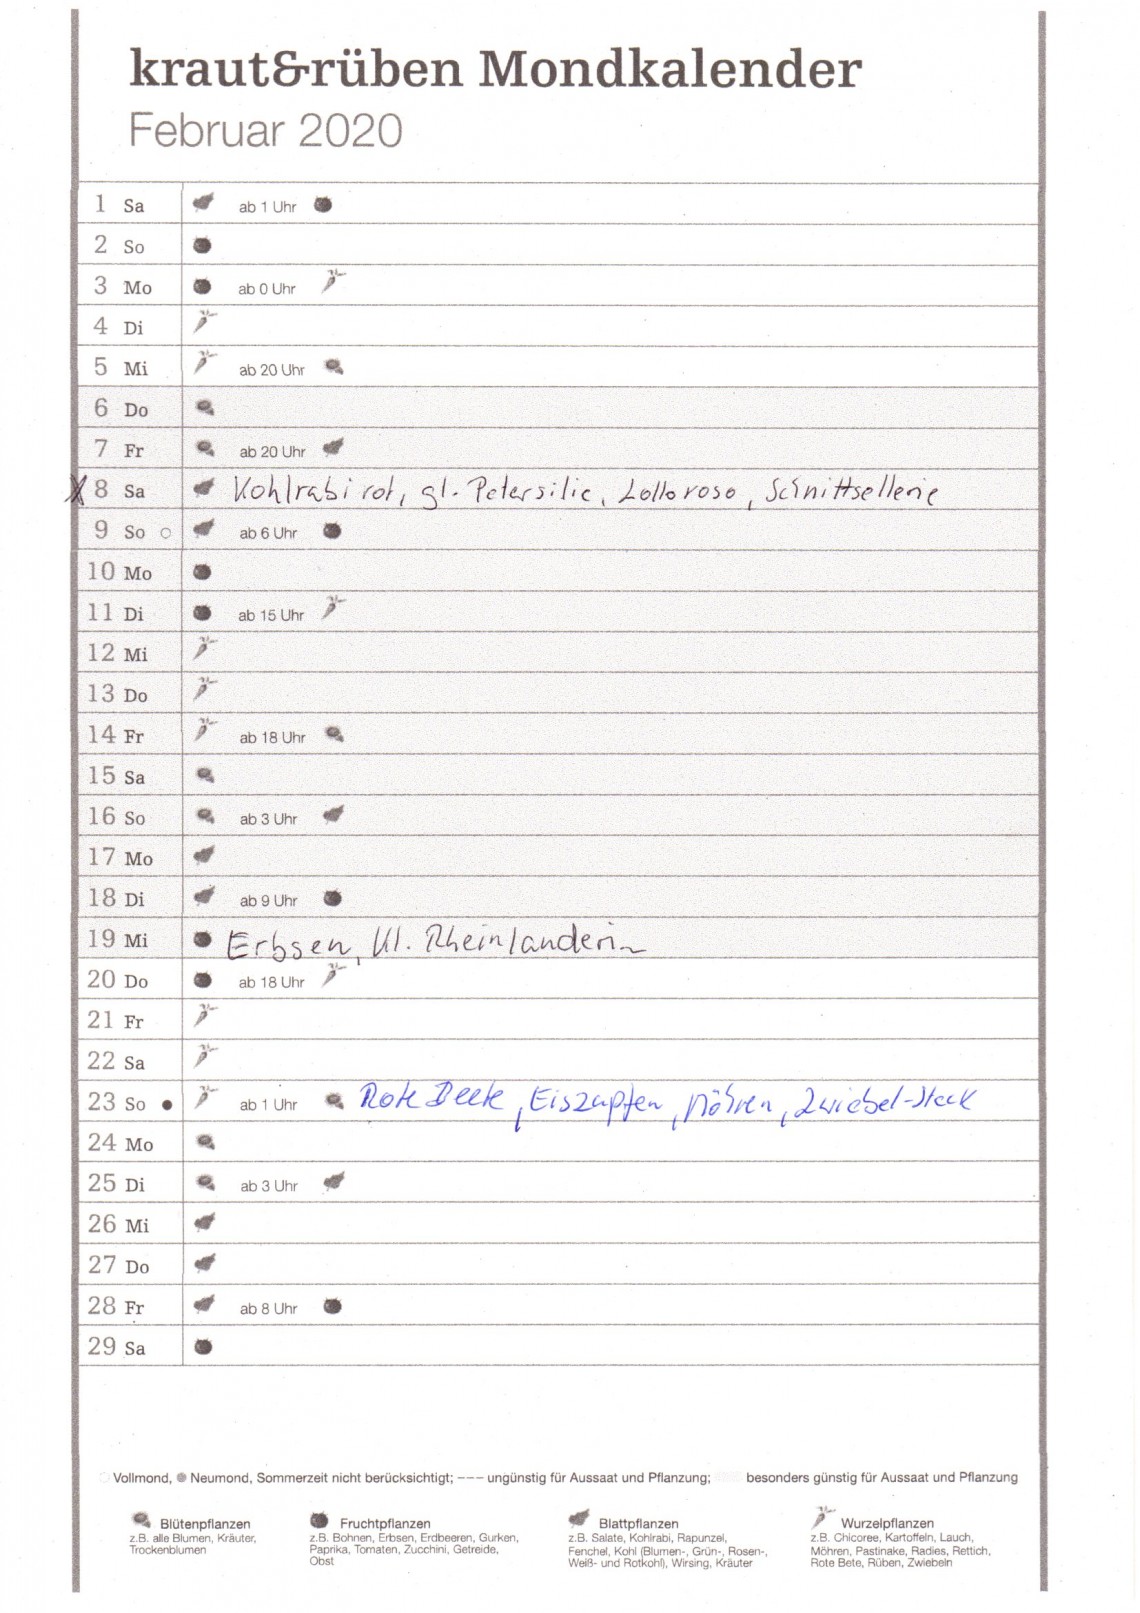 kraut&rüben Mondkalender
Februar 2020
1 Sa ab 1 Uhr
2 So
3 Mo ab 0 Uhr
4 Di
5 Mi ab 20 Uhr
6 Do
7 Fr ab 20 Uhr
X 8 Sa Kohlrabi rot, gl. Petersilie, Lolloroso, Schnittsellerie
9 So ab 6 Uhr
10 Mo
11 Di ab 15 Uhr
12 Mi
13 Do
14 Fr ab 18 Uhr
15 Sa
16 So ab 3 Uhr
17 Mo
18 Di ab 9 Uhr
19 Mi Erbsen, Kl. Rheinländerin
20 Do ab 18 Uhr
21 Fr
22 Sa
23 So ab 1 Uhr Rote Beete, Eiszapfen, Möhren, Zwiebel-Steck
24 Mo
25 Di ab 3 Uhr
26 Mi
27 Do
28 Fr ab 8 Uhr
29 Sa
Vollmond, Neumond, Sommerzeit nicht berücksichtigt; --- ungünstig für Aussaat und Pflanzung; besonders günstig für Aussaat und Pflanzung
Blütenpflanzen
z.B. alle Blumen, Kräuter,
Trockenblumen
Fruchtpflanzen
z.B. Bohnen, Erbsen, Erdbeeren, Gurken,
Paprika, Tomaten, Zucchini, Getreide,
Obst
Blattpflanzen
z.B. Salate, Kohlrabi, Rapunzel,
Fenchel, Kohl (Blumen-, Grün-, Rosen-,
Weiß- und Rotkohl), Wirsing, Kräuter
Wurzelpflanzen
z.B. Chicoree, Kartoffeln, Lauch,
Möhren, Pastinake, Radies, Rettich,
Rote Bete, Rüben, Zwiebeln